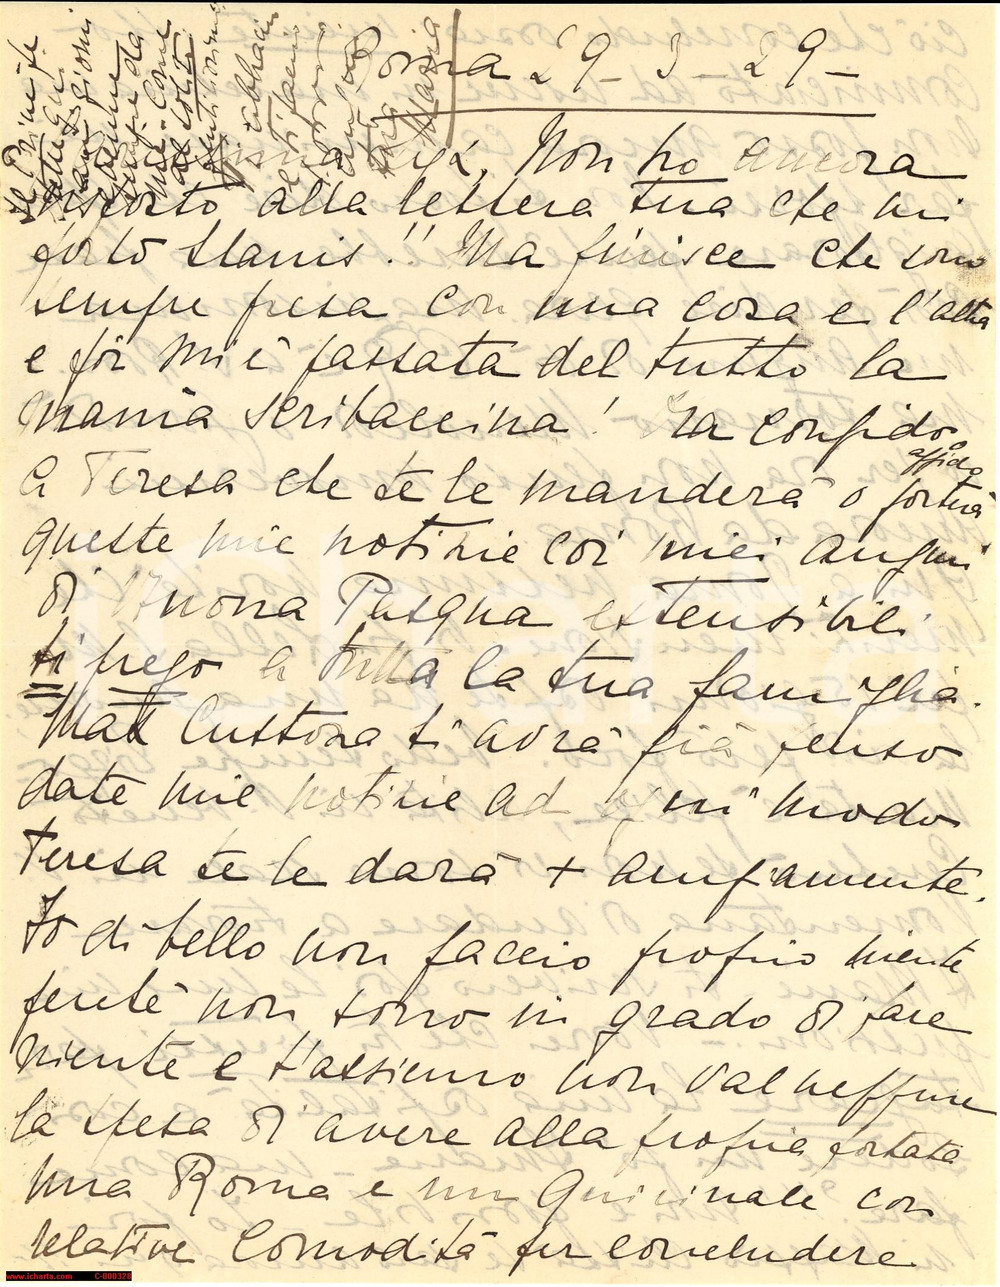 Roma 29-3-29-
Non ho ancora
risposto alla lettera tua che mi
portò Stanis!! Ma finisce che sono
sempre presa con una cosa e l'altra
e poi mi è passata del tutto la
mania scribacchina! Ma confido o
affido
a Teresa che te le manderà o porterà
queste mie notizie coi miei auguri
di Buona Pasqua estensibili
ti prego a tutta la tua famiglia.
Mad Custoza ti avrà già penso
date mie notizie ad ogni modo
Teresa te le darà + ampiamente.
Io di bello non faccio proprio niente
perché non sono in grado di fare
niente e t'assicuro non val neppure
la spesa di avere alla propria portata
una Roma e un Quirinale con
relative comodità per concludere
Il Principe
e ti faccio
Maria
www.icharta.com C-000320
iCharta